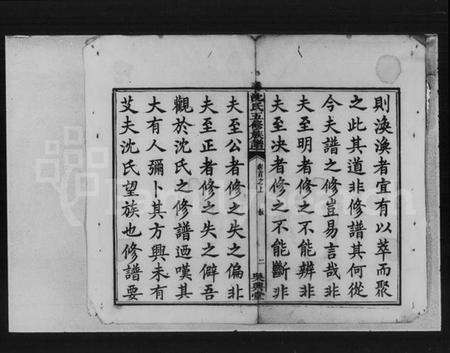 則渙渙者宜有以萃而聚
之此其道非修譜其何從
今夫譜之修豈易言哉非
夫至明者修之不能辨非
夫至决者修之不能斷非
沈氏五修族譜
卷首之上
二
吳興堂
夫至公者修之失之偏非
夫至正者修之失之僻吾
觀於沈氏之修譜迺嘆其
大有人彌卜其方興未有
艾夫沈氏望族也修譜要